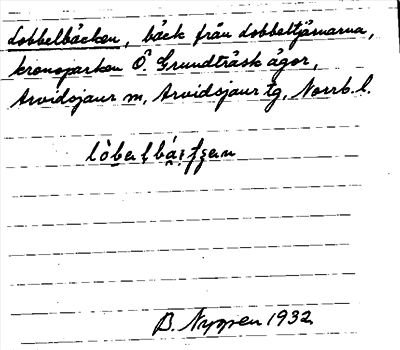 Lobbelbäcken, bäck från Lobbeltjärnarna,
kronoparken Ö. Grundträsk ägor,
Arvidsjaur sn, Arvidsjaur tg, Norrb. l.
B. Nygren 1932